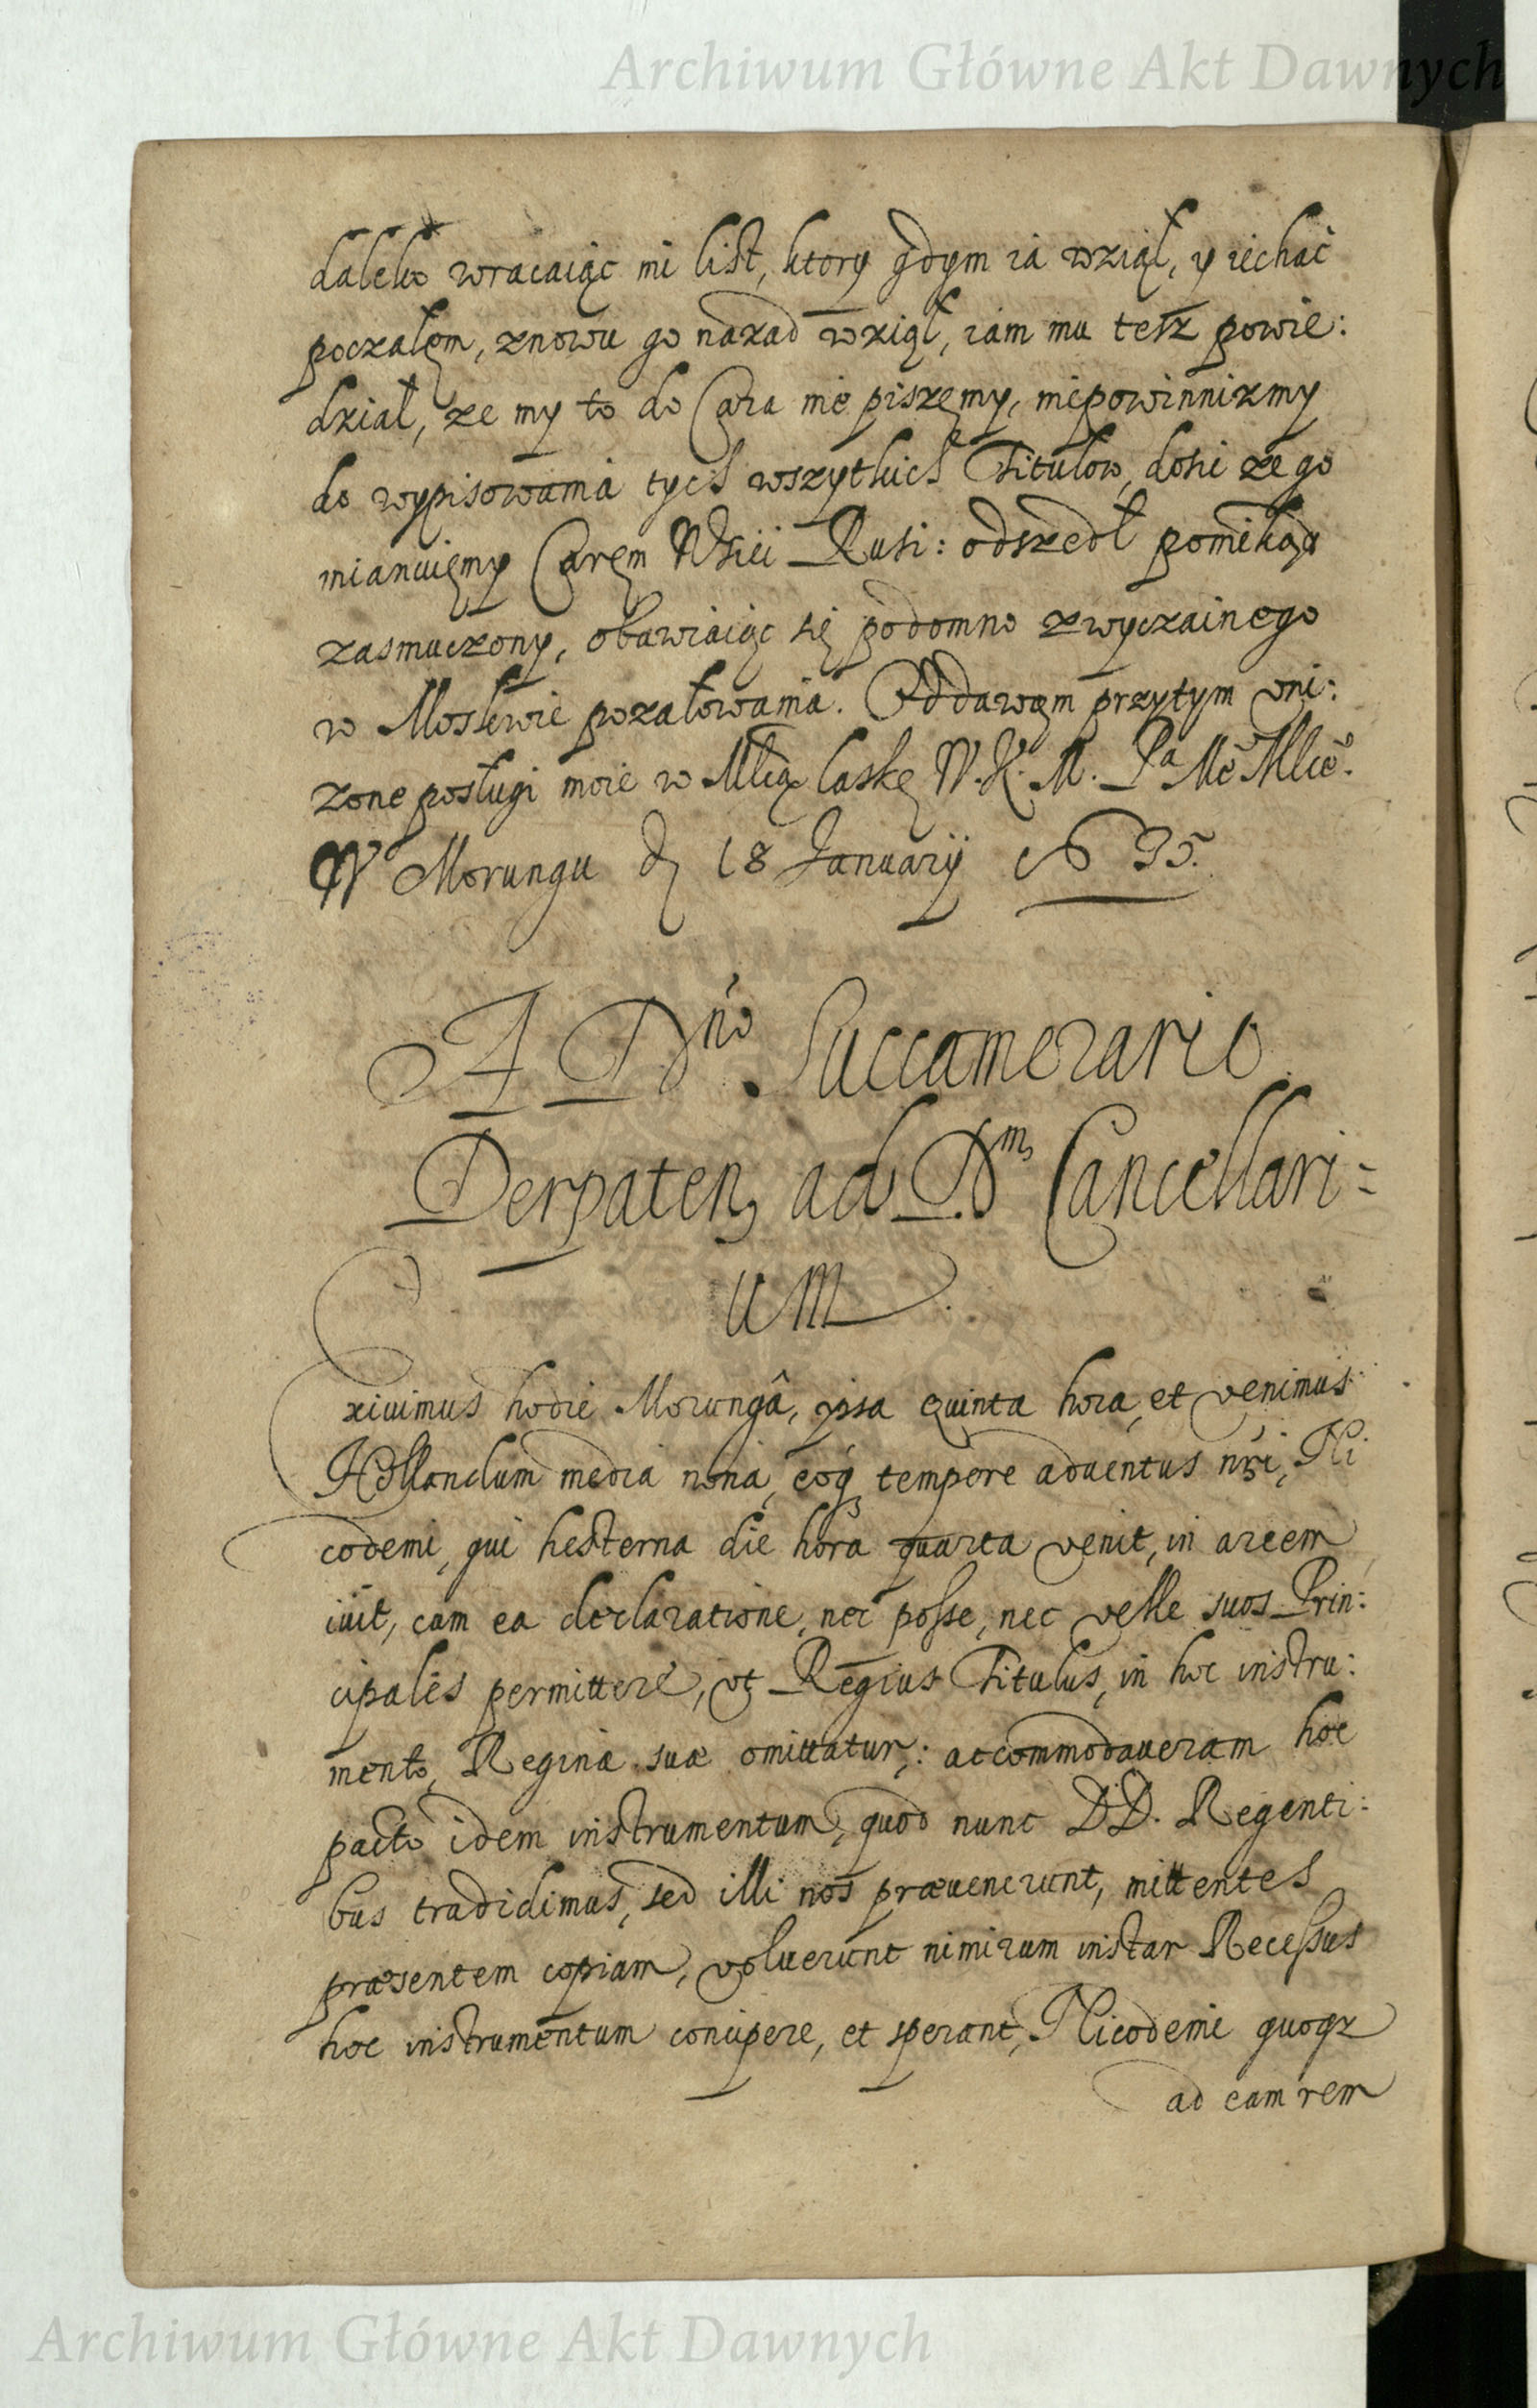 Archiwum Główne Akt Dawnych
daleko wracaiąc mi list, ktory gdym ia wziął, y iechać
poczałem, znowu go nazad wziął, iam mu tesz powie:
dział, ze my to do Cara nie piszęmy, niepowinnizmy
do wypisowania tych wszytkich Titułow, dosic ze go
mianuięmy Carem Wsiei Rusi: odszedł poniekąd
zasmuczony, obawiaiąc się podomno zwyczainego
w Moskwie pozałowania. Oddawam przytym vni:
zone posługi moie w Młcą łaskę W. K. M. Pa Me Młće.
W Morungu d 18 Januarij Ao 35.
A Dno. Succamerario
Derpaten, ad Dm Cancellari=
um.
Exiuimus hodie Morungâ, ipsa quinta hora, et venimus
Hollandum media nona, eoq tempore aduentus nri, Ni
codemi, qui hesterna die hora quarta venit, in arcem
iuit, cum ea declaratione, nec posse, nec velle suos Prin:
cipales permittere, vt Regius Titulus, in hoc instru:
mento, Reginæ suæ omittatur: accommodaueram hoc
pacto idem instrumentum, quod nunc DD. Regenti:
bus tradidimus, sed illi nos præuenerunt, mittentes
præsentem copiam, voluerunt nimirum instar Recessus
hoc instrumentum concipere, et sperant, Nicodemi quoqz
ad eam rem
Archiwum Główne Akt Dawnych